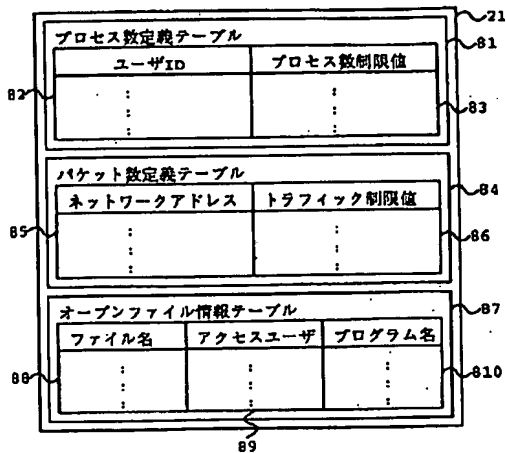 21
プロセス数定義テーブル
81
ユーザID プロセス数制限値
82
83
パケット数定義テーブル
84
ネットワークアドレス トラフィック制限値
85
86
オープンファイル情報テーブル
87
ファイル名 アクセスユーザ プログラム名
88
810
89